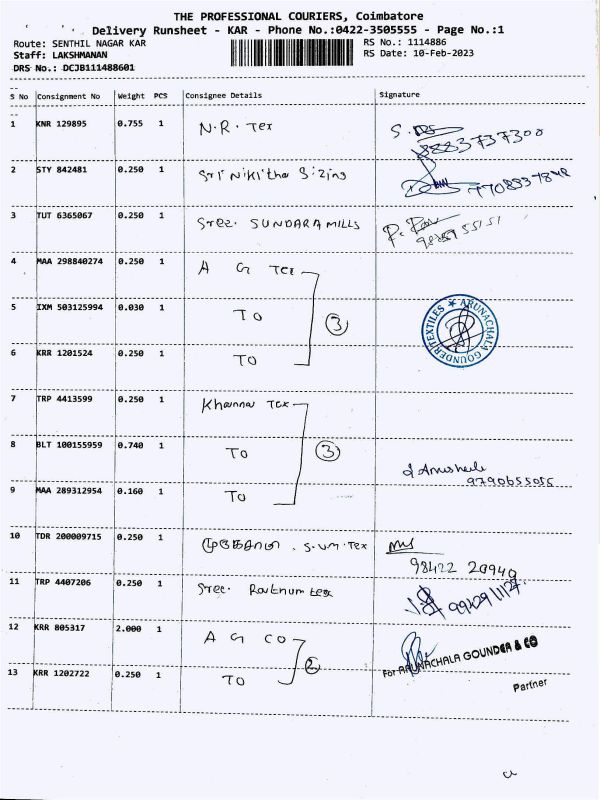 THE PROFESSIONAL COURIERS, Coimbatore
Delivery Runsheet - KAR - Phone No.:0422-3505555 - Page No.:1
Route: SENTHIL NAGAR KAR RS No.: 1114886
Staff: LAKSHMANAN RS Date: 10-Feb-2023
DRS No.: DCJB111488601
S No Consignment No Weight PCS Consignee Details Signature
1 KNR 129895 0.755 1 N.R. Tex
8883737300
2 STY 842481 0.250 1 Sri Nikitha Sizing
3 TUT 6365067 0.250 1 Sree. SUNDARA MILLS
4 MAA 298840274 0.250 1 A G Tex
5 IXM 503125994 0.030 1 TO 3
ARUNACHALA GOUNDER TEXTILES
6 KRR 1201524 0.250 1 TO
7 TRP 4413599 0.250 1 Khanna Tex
8 BLT 100155959 0.740 1 TO 3
9790655055
9 MAA 289312954 0.160 1 TO
10 TDR 200009715 0.250 1 S.UM.Tex
98422 20940
11 TRP 4407206 0.250 1 Sree. Ratnum tex
12 KRR 805317 2.000 1 A G CO 2
For ARUNACHALA GOUNDER & CO
13 KRR 1202722 0.250 1 TO
Partner